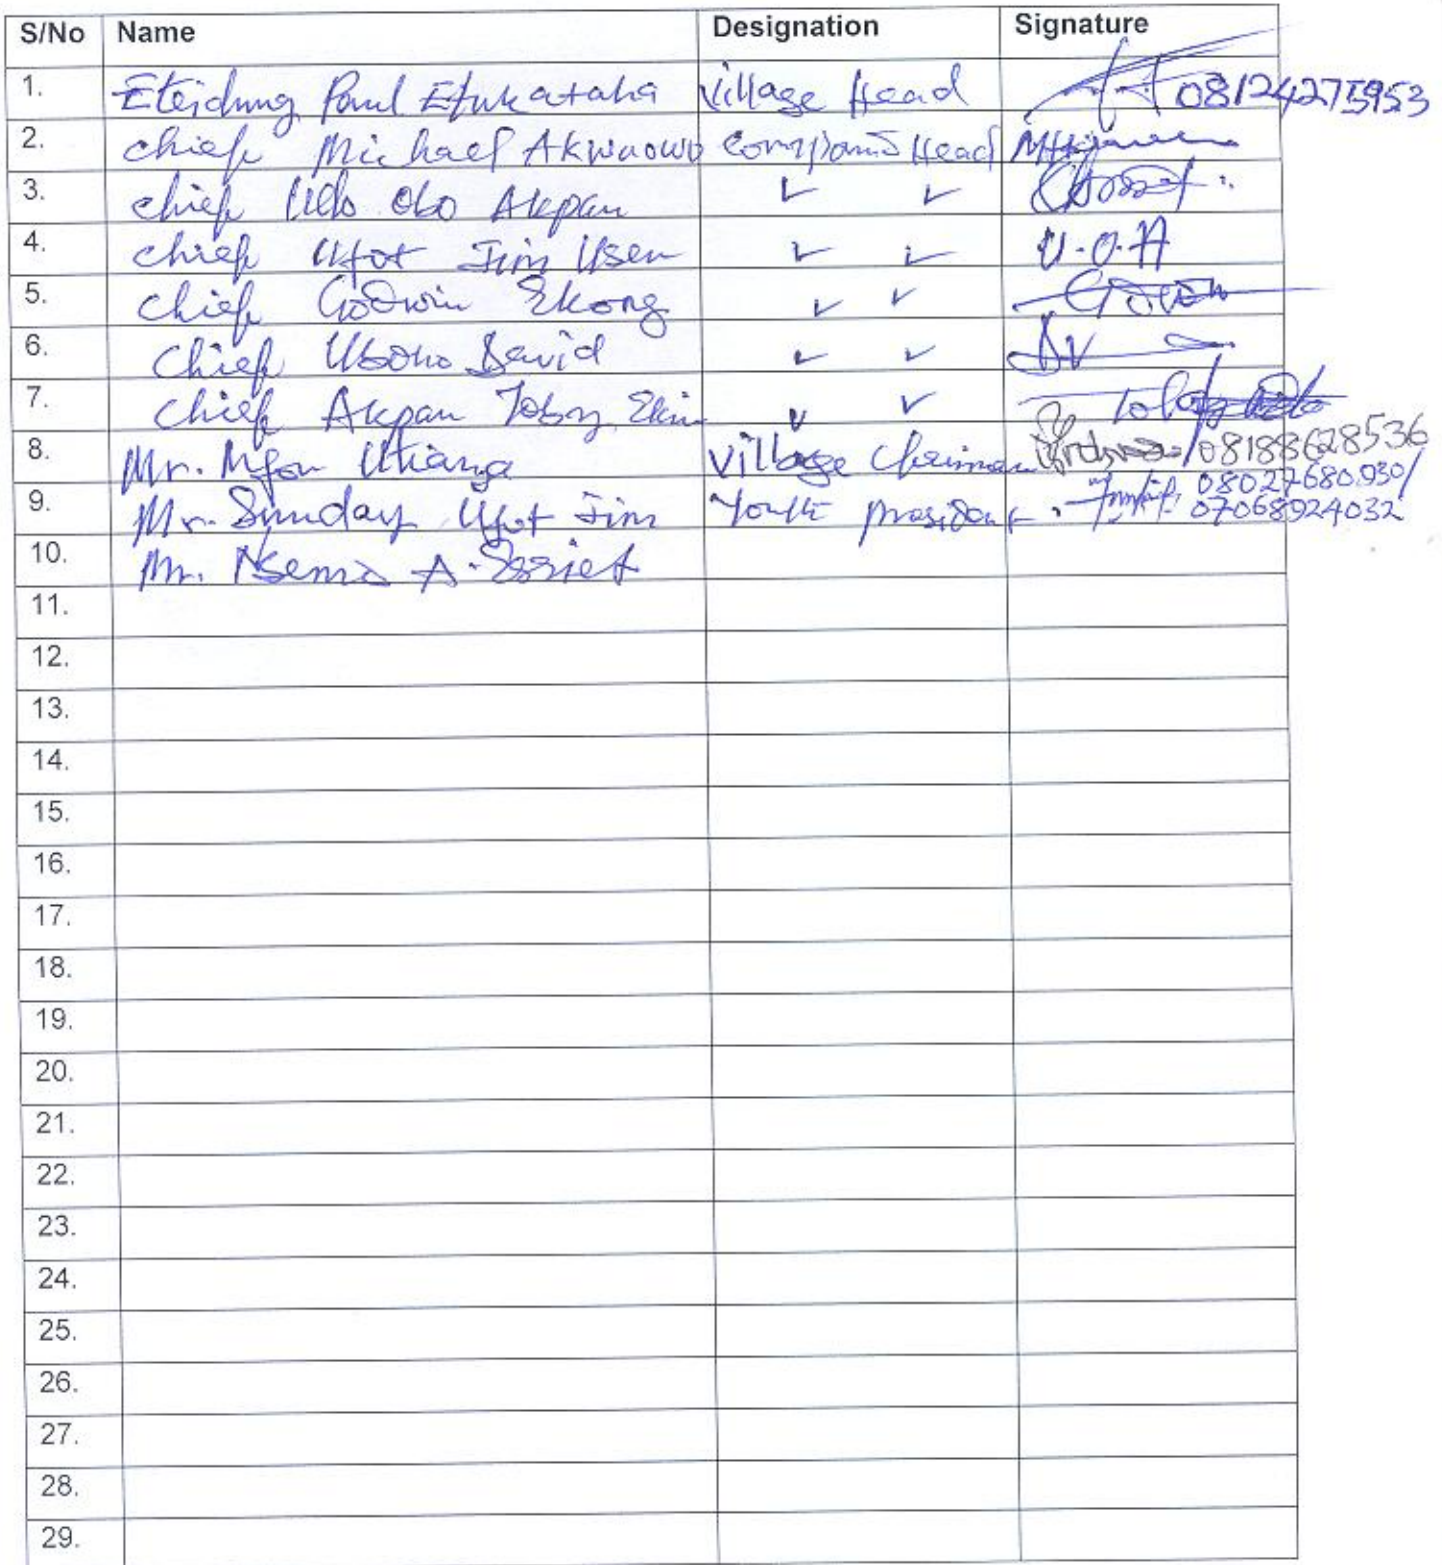 S/No Name Designation Signature
1. Eteidung Paul Efukataha Village Head 08124275953
2. Chief Michael Akwaowo Compound Head
3. Chief Udo Obo Akpan ✓ ✓
4. Chief Ufot Jim Usen ✓ ✓ U.O.A
5. Chief Godwin Ekong ✓ ✓
6. Chief Ubono David ✓ ✓
7. Chief Akpan Toby Ekin ✓ ✓
8. Mr. Mfon Utianga Village Chairman /08188628536
9. Mr. Sunday Ufot Jim Youth President 08027680930/
07068924032
10. Mr. A. Essiet
11.
12.
13.
14.
15.
16.
17.
18.
19.
20.
21.
22.
23.
24.
25.
26.
27.
28.
29.